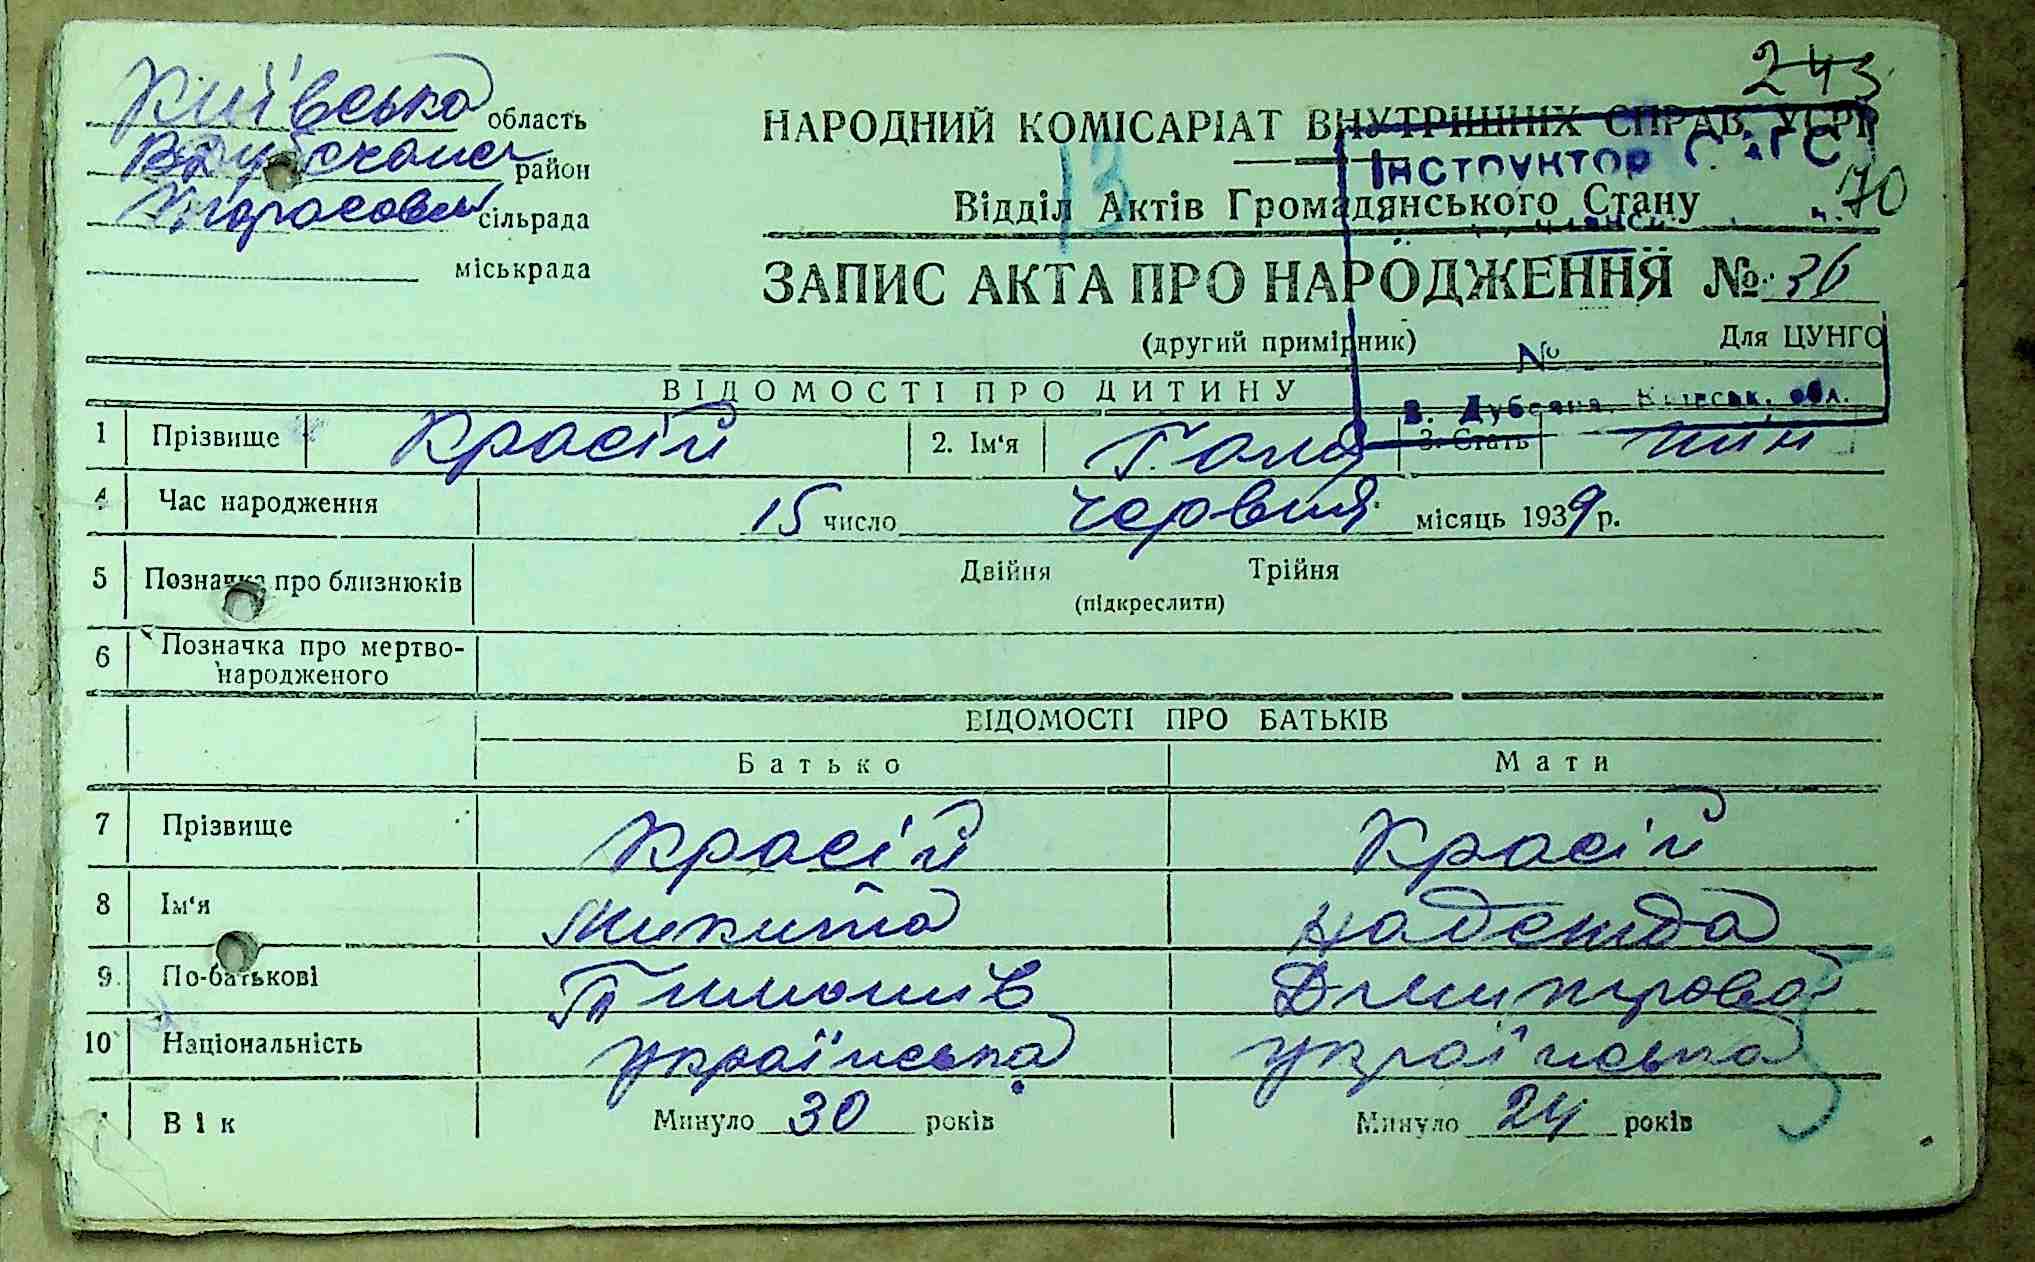 243
Київська область
В Дубечанс район
Тарасовс сільрада
міськрада
НАРОДНИЙ КОМІСАРІАТ ВНУТРІШНІХ СПРАВ, УСРР
ІНСТРУКТОР
13
170
Відділ Актів Громадянського Стану
ЗАПИС АКТА ПРО НАРОДЖЕННЯ №: 36
(другий примірник)
Для ЦУНГО
№
ВІДОМОСТІ ПРО ДИТИНУ
В. Дубечня, обл.
1 Прізвище Красій 2. Ім‘я Галя 3. Стать жін
4 Час народження 15 число червня місяць 1939 р.
5 Позначка про близнюків Двійня Трійня
(підкреслити)
6 Позначка про мертво-
народженого
ВІДОМОСТІ ПРО БАТЬКІВ
Батько Мати
7 Прізвище Красій Красій
8 Ім‘я Микита Надежда
9 По-батькові Тимошів Дмитрова
10 Національність українська українська
Вік Минуло 30 років Минуло 24 років